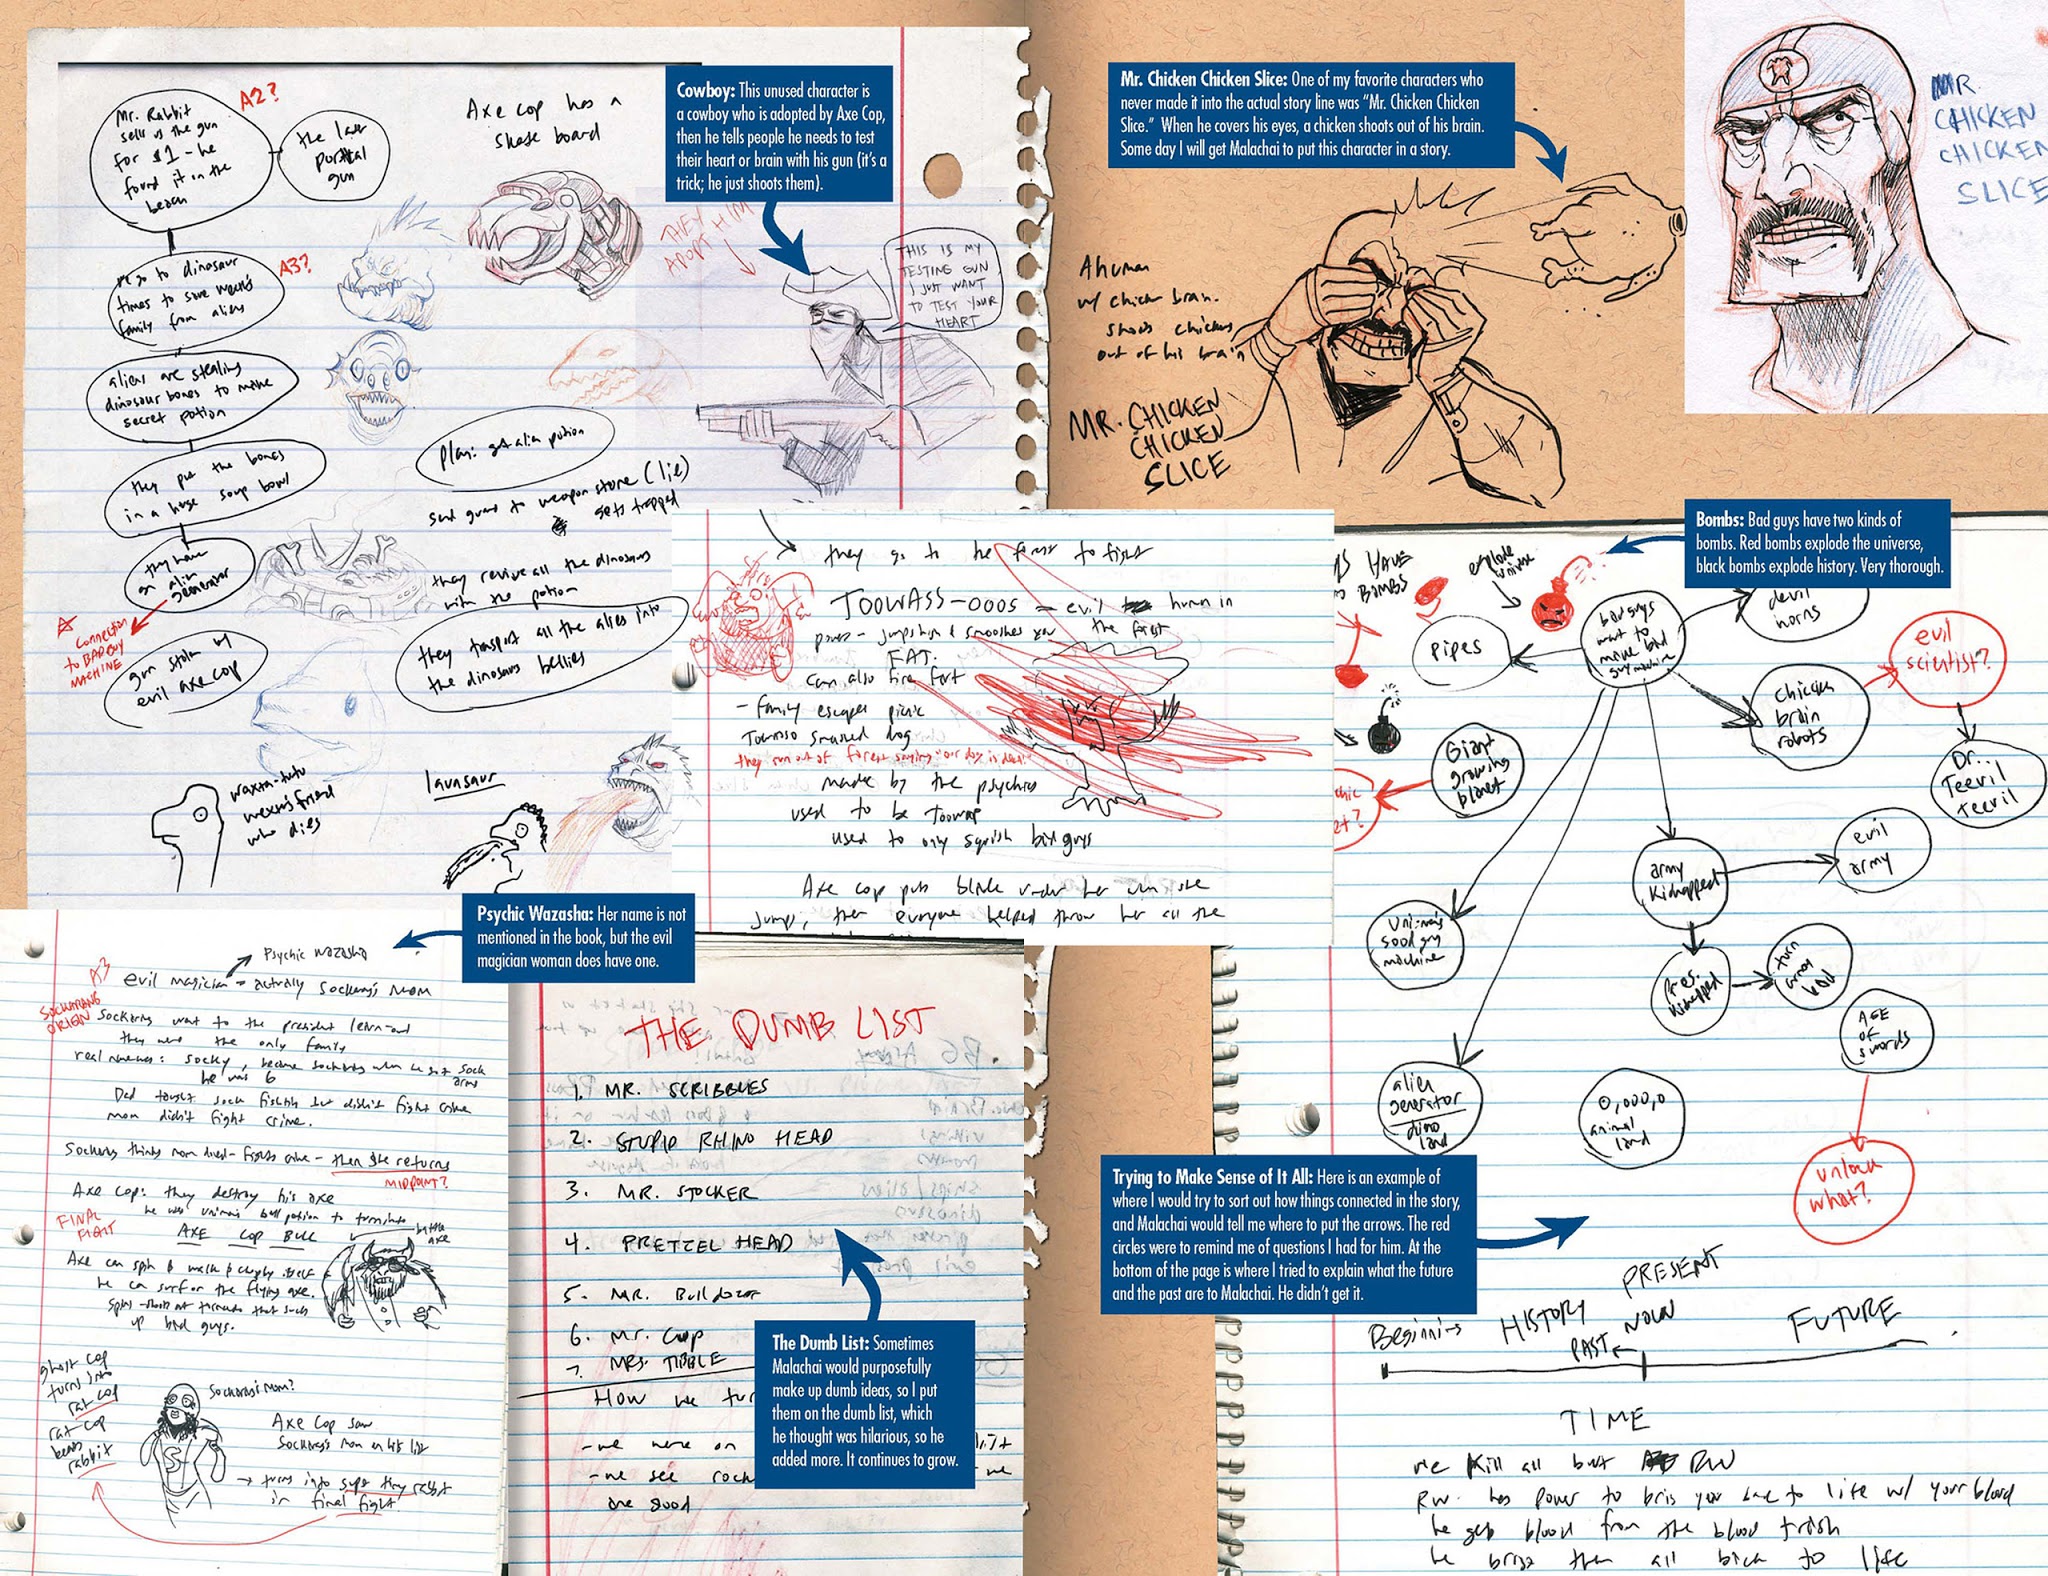 Mr. Rabbit
sells us the gun
for $1 - he
found it on the
beach
A2?
the laser
gun
Axe cop has a
skate board
Cowboy: This unused character is
a cowboy who is adopted by Axe Cop,
then he tells people he needs to test
their heart or brain with his gun (it's a
trick; he just shoots them).
THEY
ADOPT HIM
THIS IS MY
TESTING GUN
I JUST WANT
TO TEST YOUR
HEART
we go to dinosaur
times to save wexter's
family from aliens
A3?
aliens are stealing
dinosaur bones to make
secret potion
they put the bones
in a huge soup bowl
they have
an alien
generator
connection
to BAD GUY
MACHINE
gun stolen by
evil axe cop
plan: get alien potion
send guard to weapon store (lie)
gets trapped
they revive all the dinosaurs
with the potion
they transport all the aliens into
the dinosaurs bellies
wexter's friend
who dies
lavasaur
Mr. Chicken Chicken Slice: One of my favorite characters who
never made it into the actual story line was "Mr. Chicken Chicken
Slice." When he covers his eyes, a chicken shoots out of his brain.
Some day I will get Malachai to put this character in a story.
A human
w/ chicken brain.
shoots chickens
out of his brain
MR. CHICKEN
CHICKEN
SLICE
MR.
CHICKEN
CHICKEN
SLICE
they go to the forest to fight
TOOWASS-OOOS = evil human in
the forest
power - jumps high & smooshes you
FAT.
can also fire fart
- family escapes picnic
smashed dog
they run out of forest saying "our dog is dead"
made by the psychics
used to be
used to only squish bad guys
Axe cop puts blade under her when she
jumps, then everyone helped throw her all the
Bombs: Bad guys have two kinds of
bombs. Red bombs explode the universe,
black bombs explode history. Very thorough.
HAVE
BOMBS
explode
universe
pipes
bad guys
want to
make bad
guy machine
devil
horns
evil
scientist?
chicken
brain
robots
Dr..
Teevil
Teevil
Giant
growing
planet
army
kidnapped
evil
army
Uni-man's
good guy
machine
Pres.
kidnapped
turn
army
AGE
OF
swords
alien
generator
dino
land
0,000,0
animal
land
unlock
what?
Psychic Wazasha: Her name is not
mentioned in the book, but the evil
magician woman does have one.
A3
Psychic Wazasha
evil magician = actually Sockarang's mom
SOCKARANG
ORIGIN
Sockarang went to the president learn-out
they were the only family
real names: Socky, became sockarang when he got sock
arms
he was 6
Dad taught sock fighting but didn't fight crime
mom didn't fight crime.
Sockarang thinks mom died - fights crime - then she returns
MIDPOINT?
Axe Cop: they destroy his axe
FINAL
FIGHT
AXE COP BULL
battle
axe
he can surf on the flying axe.
up bad guys.
ghost cop
turns into
rat cop
rat cop
beats
rabbit
Sockarang's mom?
Axe Cop saw
Sockarang's mom on hit list
→ turns into super tiny rabbit
in final fight
THE DUMB LIST
1. MR. SCRIBBLES
2. STUPID RHINO HEAD
3. MR. STOCKER
4. PRETZEL HEAD
5. Mr. Bulldozer
6. Mr.
7. MRS. TIBBLE
How we
- we were on
- we see
are good
The Dumb List: Sometimes
Malachai would purposefully
make up dumb ideas, so I put
them on the dumb list, which
he thought was hilarious, so he
added more. It continues to grow.
Trying to Make Sense of It All: Here is an example of
where I would try to sort out how things connected in the story,
and Malachai would tell me where to put the arrows. The red
circles were to remind me of questions I had for him. At the
bottom of the page is where I tried to explain what the future
and the past are to Malachai. He didn't get it.
PRESENT
Beginning HISTORY NOW FUTURE
PAST
TIME
we kill all but RW
RW. has power to bring you back to life w/ your blood
he gets blood from the blood trash
he brings them all back to life